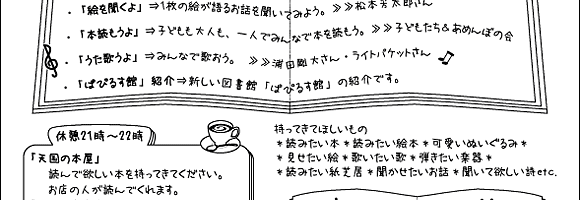 ・「絵を聞くよ」⇒1枚の絵が語るお話を聞いてみよう。≫≫松本芳太郎さん
・「本読もうよ」⇒子どもも大人も、一人でみんなで本を読もう。≫≫子どもたち&あめんぼの会
・「うた歌うよ」⇒みんなで歌おう。 ≫≫浦田剛大さん・ライトパケットさん
・「ぱぴるす館」紹介⇒新しい図書館「ぱぴるす館」の紹介です。
休憩21時〜22時
「天国の本屋」
読んで欲しい本を持ってきてください。
お店の人が読んでくれます。
持ってきてほしいもの
*読みたい本*読みたい絵本*可愛いぬいぐるみ*
*見せたい絵*歌いたい歌*弾きたい楽器*
*読みたい紙芝居*聞かせたいお話*聞いて欲しい詩etc.